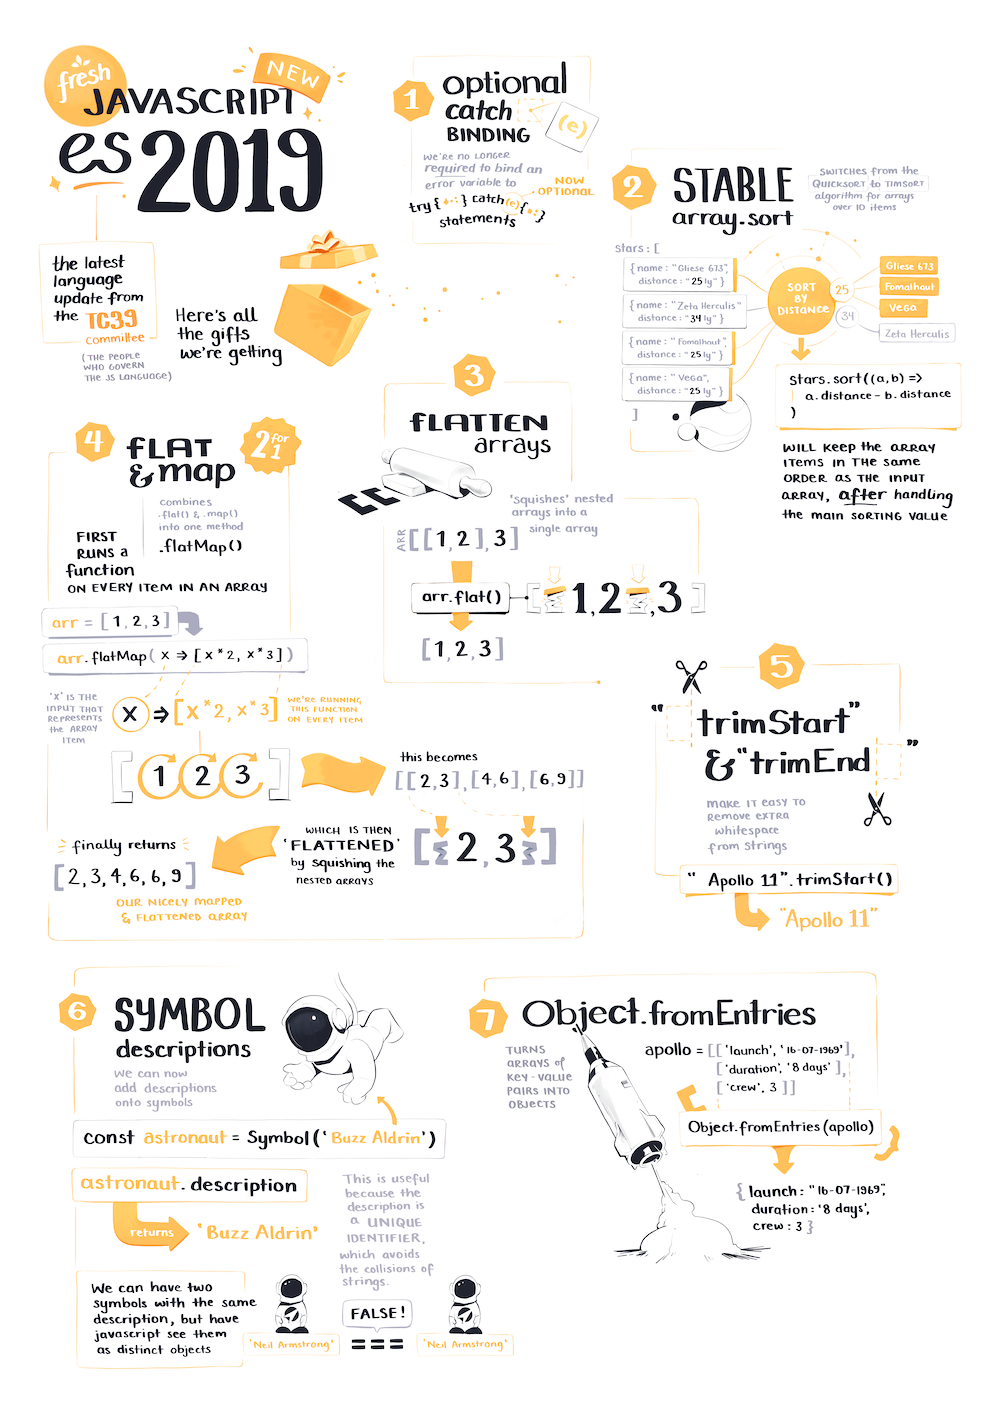 fresh
NEW
JAVASCRIPT
es2019
the latest
language
update from
the TC39
committee
(THE PEOPLE
WHO GOVERN
THE JS LANGUAGE)
Here's all
the gifts
we're getting
1
optional
catch
BINDING
(e)
WE'RE NO LONGER
required to bind an
error variable to
NOW
OPTIONAL
try { } catch (e) { }
statements
2
STABLE
array.sort
SWITCHES from the
QUICKSORT to TIMSORT
algorithm for arrays
over 10 items
stars : [
{ name : "Gliese 673",
distance : "25 ly" }
{ name : "Zeta Herculis"
distance : "34 ly" }
{ name : "Fomalhaut",
distance : "25 ly" }
{ name : "Vega",
distance : "25 ly" }
]
SORT
BY
DISTANCE
25
34
Gliese 673
Fomalhaut
Vega
Zeta Herculis
stars.sort((a, b) =>
a.distance - b.distance
)
WILL KEEP the ARRAY
ITEMS IN THE SAME
ORDER AS THE INPUT
ARRAY, after handling
the main SORTING VALUE
3
FLATTEN
arrays
'squishes' nested
arrays into a
single array
ARR
[[1, 2], 3]
arr.flat()
[ 1, 2 , 3 ]
[1, 2, 3]
4
FLAT
& map
2 for 1
combines
.flat() & .map()
into one method
.flatMap()
FIRST
RUNS a
function
ON EVERY ITEM IN AN ARRAY
arr = [1, 2, 3]
arr.flatMap( x => [x * 2, x * 3])
'X' IS THE
INPUT THAT
REPRESENTS
the ARRAY
ITEM
x => [x * 2, x * 3]
WE'RE RUNNING
THIS FUNCTION
ON EVERY ITEM
[1 2 3]
this becomes
[[2, 3], [4, 6], [6, 9]]
WHICH IS THEN
'FLATTENED'
by squishing the
NESTED ARRAYS
[ 2, 3 ]
finally returns
[2, 3, 4, 6, 6, 9]
OUR NICELY MAPPED
& FLATTENED ARRAY
5
"trimStart"
& "trimEnd"
MAKE IT EASY TO
REMOVE EXTRA
whitespace
from strings
"  Apollo 11".trimStart()
"Apollo 11"
6
SYMBOL
descriptions
We can now
add descriptions
onto symbols
const astronaut = Symbol('Buzz Aldrin')
astronaut.description
returns
'Buzz Aldrin'
This is useful
because the
description is
a UNIQUE
IDENTIFIER,
which avoids
the collisions of
strings.
We can have two
symbols with the same
description, but have
javascript see them
as distinct objects
'Neil Armstrong'
FALSE!
===
'Neil Armstrong'
7
Object.fromEntries
TURNS
ARRAYS of
KEY-VALUE
PAIRS INTO
OBJECTS
apollo = [[ 'launch', '16-07-1969'],
['duration', '8 days' ],
['crew', 3 ]]
Object.fromEntries(apollo)
{ launch : "16-07-1969",
duration : '8 days',
crew : 3 }